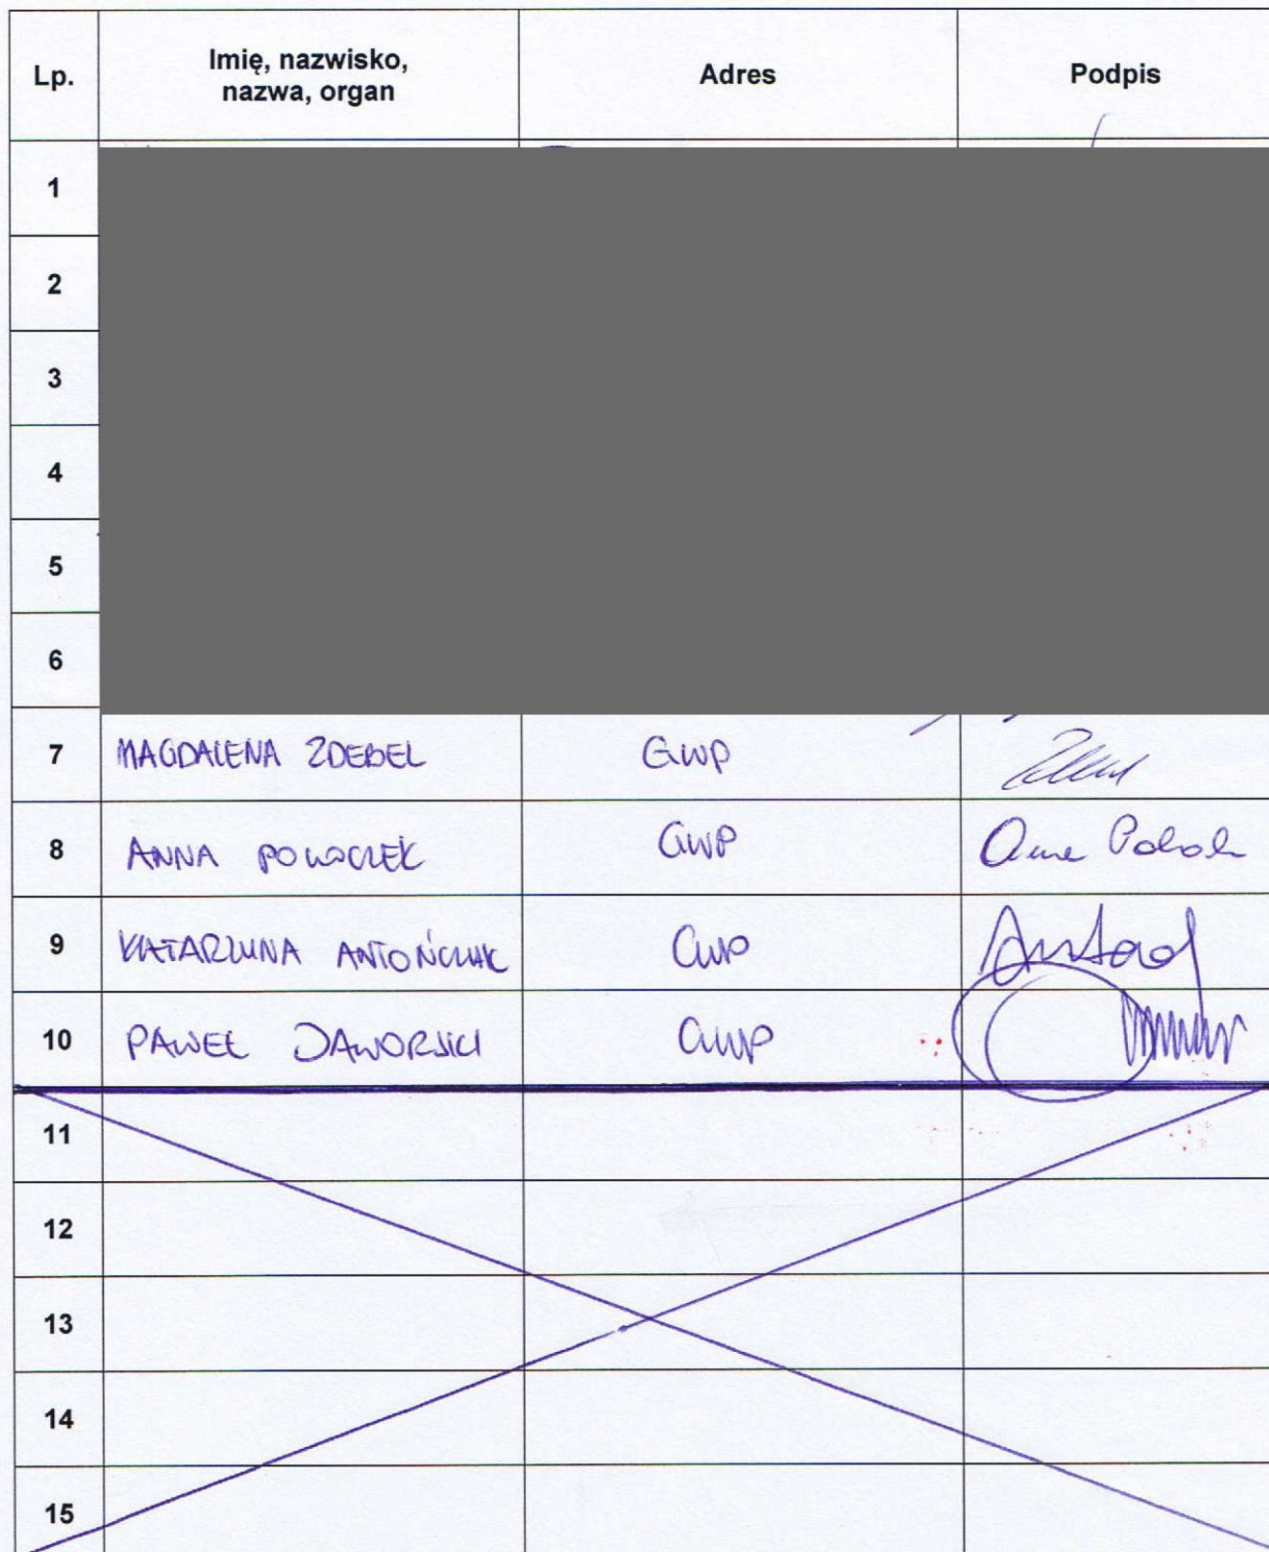 Lp. Imię, nazwisko, nazwa, organ Adres Podpis
1
2
3
4
5
6
7 MAGDALENA ZDEBEL GWP
8 ANNA POLOCZEK GWP
9 KATARZYNA ANTOŃCZAK GWP
10 PAWEŁ JAWORSKI GWP
11
12
13
14
15